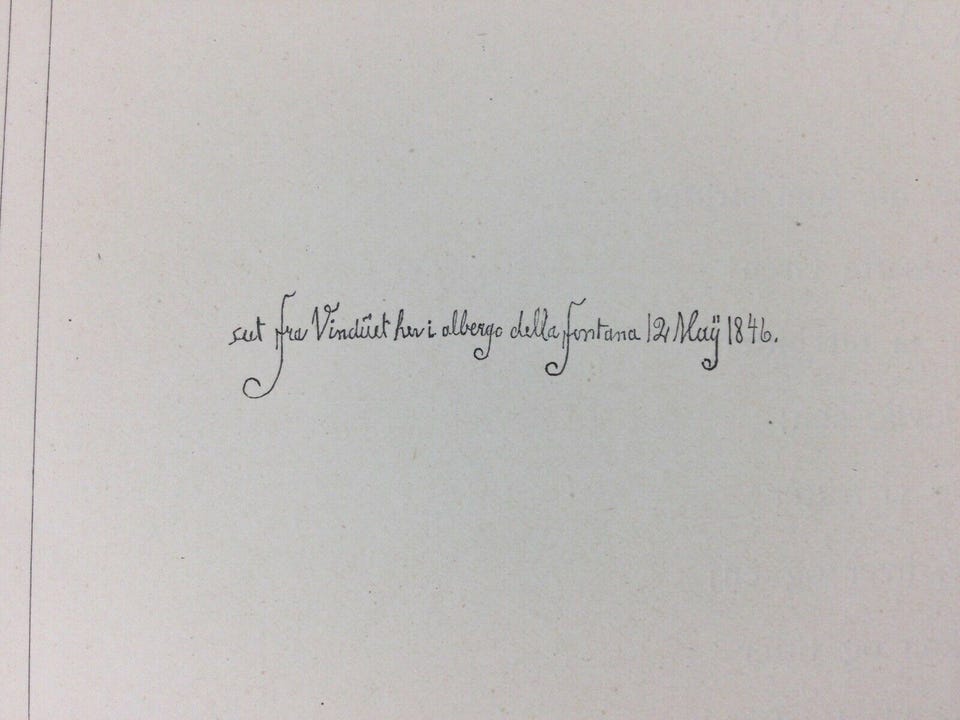 seet fra Vindüet her i albergo della fontana 12 Maÿ 1846.